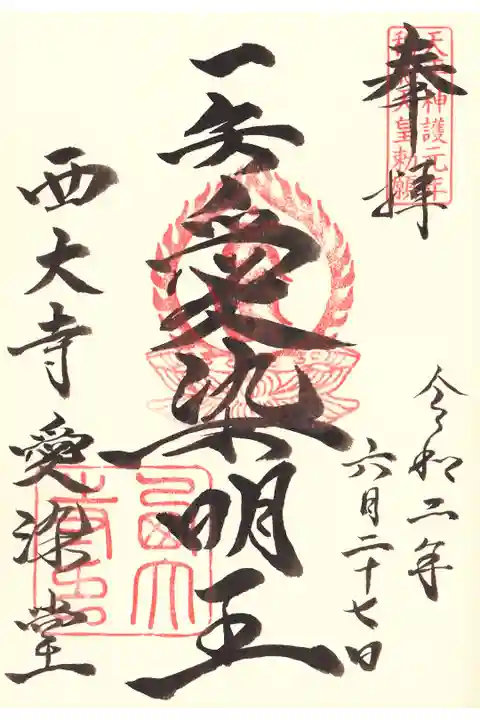 奉拝
天平神護元年
称徳天皇勅願
令和二年
六月二十七日
一矢愛染明王
西大寺 愛染堂